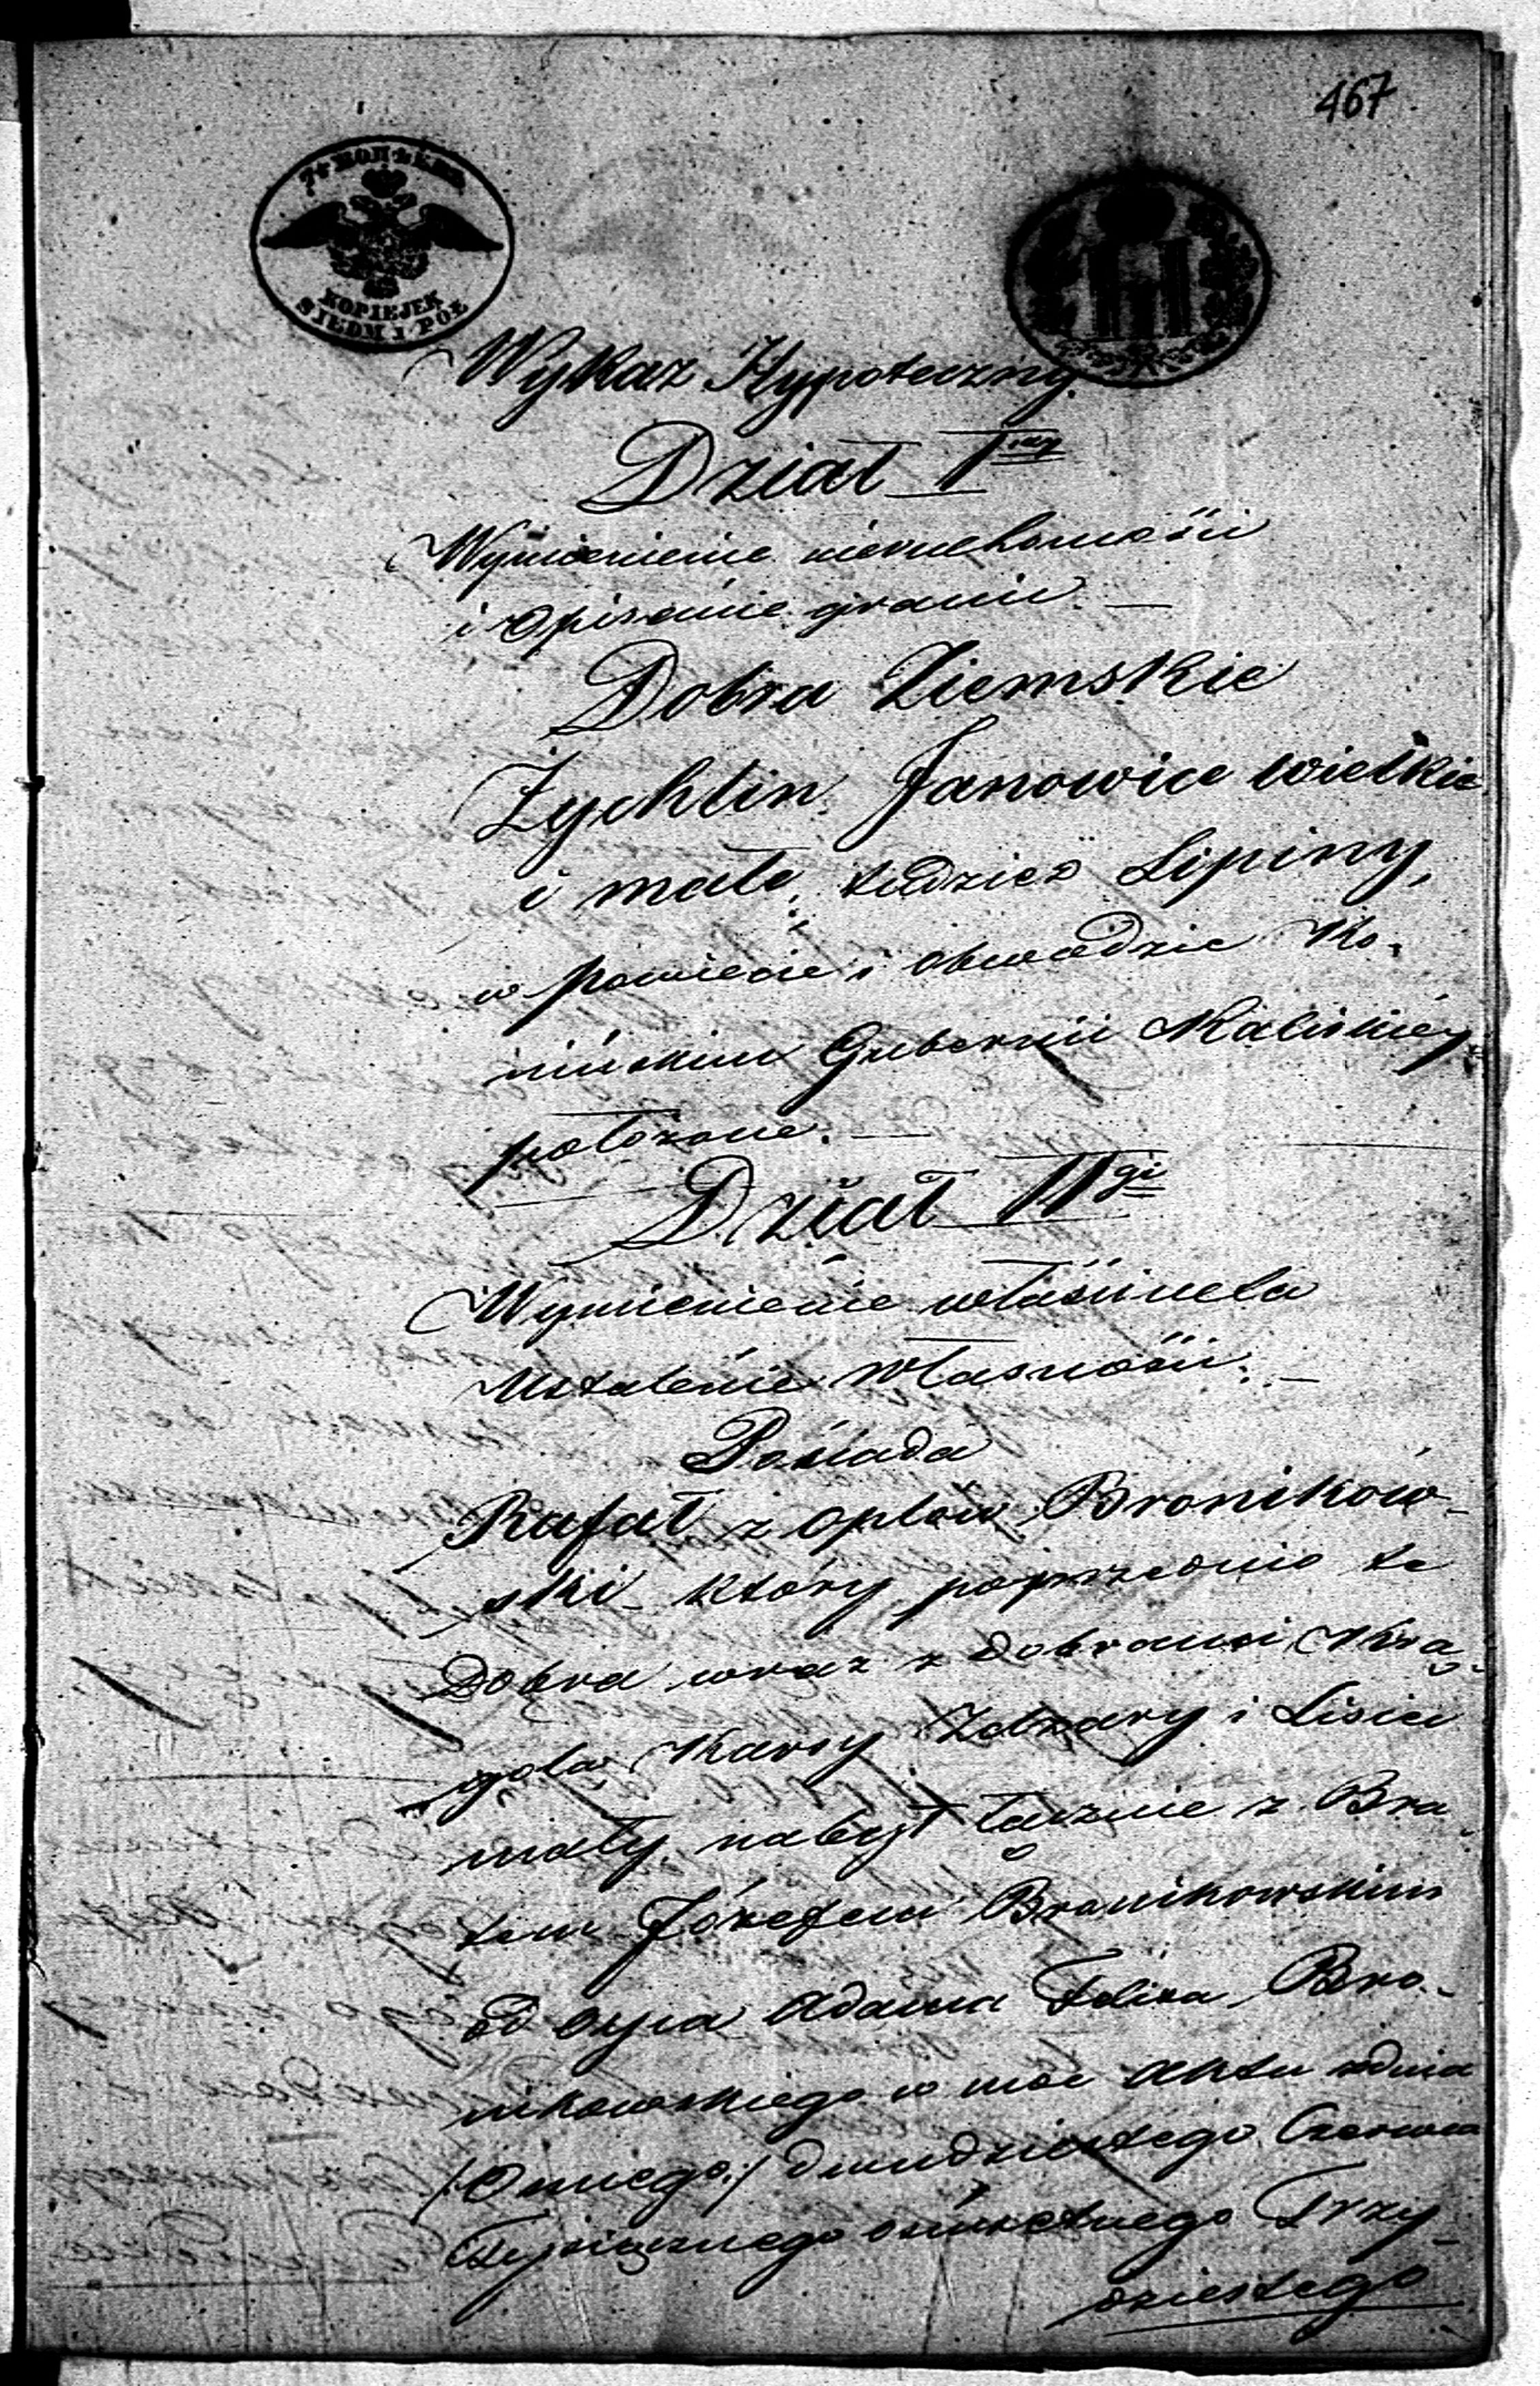 467
7½ КОПѢЕКЪ
KOPIEJEK
SIEDM i PÓŁ
Wykaz Hypoteczny
Dział Iszy
Wymienienie nieruchomości
i Opisanie granic. —
Dobra Ziemskie
Żychlin, Janowice wielkie
i małe, tudzież Lipiny,
w powiecie i obwodzie Ko-
nińskim Gubernii Kaliskiéy
położone. —
Dział IIgi
Wymienienie właściciela
Ustalenie własności. —
Posiada
Rafał z Opłów Bronikow-
ski który poprzednio te
Dobra wraz z Dobrami Krą-
gola Karsy Zdzary i Lisiec
mały, nabył łącznie z Bra-
tem Józefem Bronikowskim
od Oyca Adama Felixa Bro-
nikowskiego w moc Aktu zdnia
/:Osmego:/ dwudziestego Czerwca
Tysiącznego ośmsetnego Trzy-
dziestego